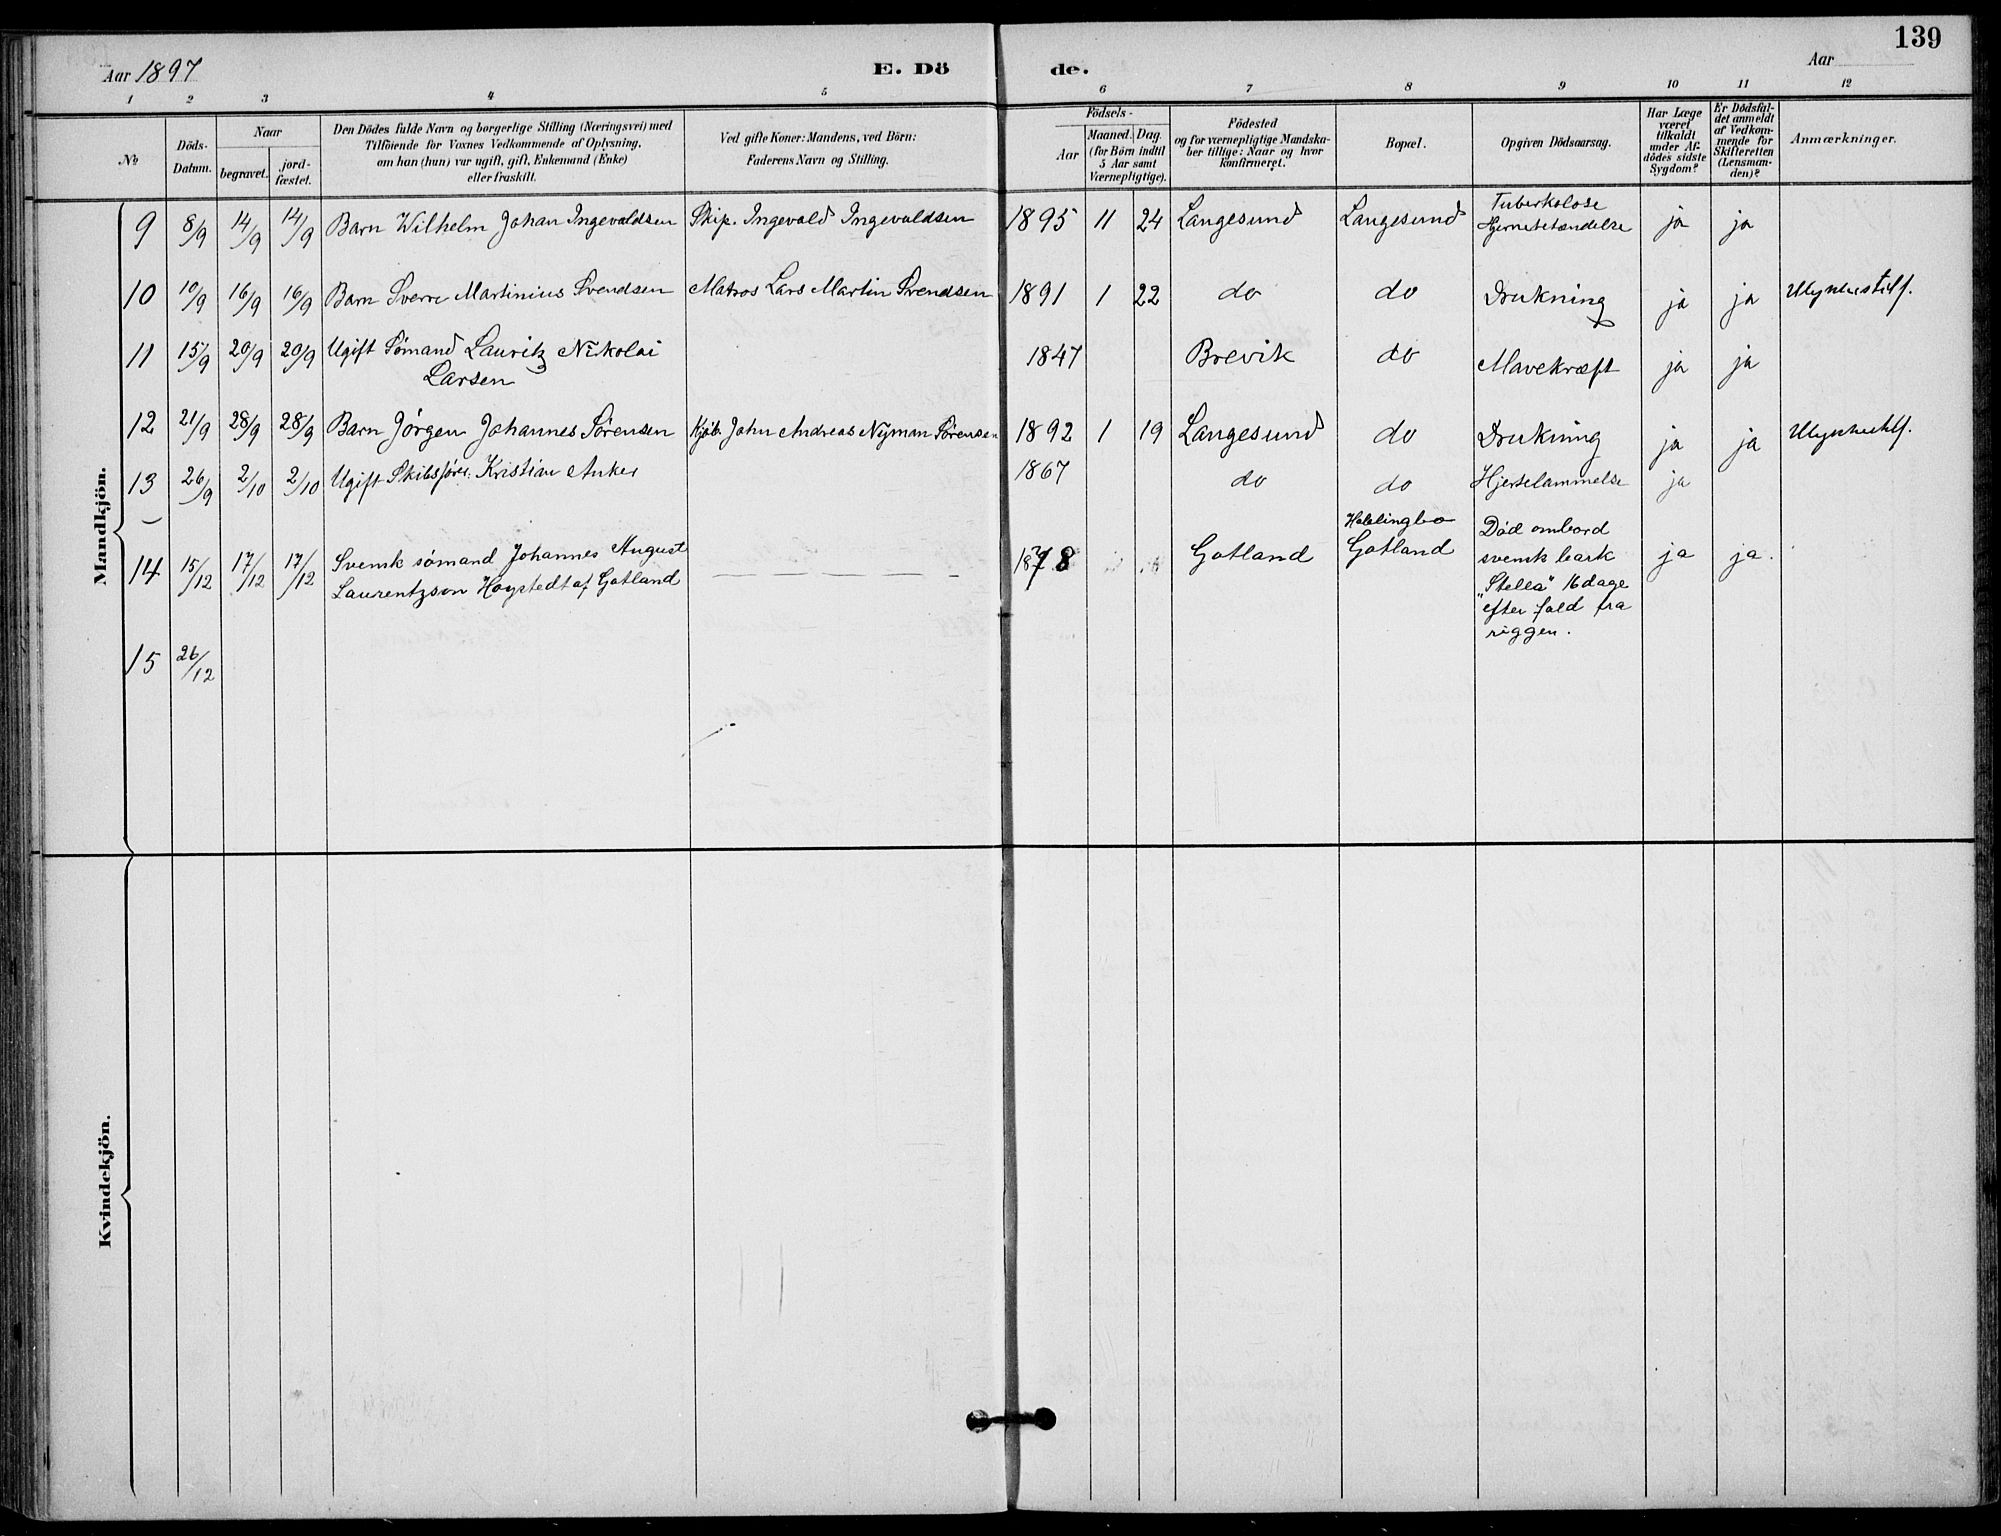 139
Aar 1897
E. Dö de.
Aar
1 2 3 4 5 6 7 8 9 10 11 12
№
Döds-
Datum.
Naar
begravet.
jord-
fæstet.
Den Dödes fulde Navn og borgerlige Stilling (Næringsvei) med
Tilföiende for Voxnes Vedkommende af Oplysning,
om han (hun) var ugift, gift, Enkemand (Enke)
eller fraskilt.
Ved gifte Koner: Mandens, ved Börn:
Faderens Navn og Stilling.
Födsels-
Aar
Maaned. Dag.
(for Börn indtil
5 Aar samt
Værnepligtige).
Födested
og for værnepligtige Mandska-
ber tillige: Naar og hvor
konfirmeret.
Bopæl.
Opgiven Dödsaarsag.
Har Læge
været
tilkaldt
under Af-
dödes sidste
Sygdom?
Er Dödsfal-
det anmeldt
af Vedkom-
mende for
Skifteretten
(Lensman-
den)?
Anmærkninger.
Mandkjön.
9 8/9 14/9 14/9 Barn Wilhelm Johan Ingevaldsen Skip. Ingevald Ingevaldsen 1895 11 24 Langesund Langesund Tuberkolose ja ja
Hjernebetændelse
10 10/9 16/9 16/9 Barn Sverre Martinius Svendsen Matros Lars Martin Svendsen 1891 1 22 do do Drukning ja ja Ulykkestilf.
11 15/9 20/9 20/9 Ugift Sømand Lauritz Nikolai 1847 Brevik do Mavekræft ja ja
Larsen
12 21/9 28/9 28/9 Barn Jørgen Johannes Sørensen Kjøb. John Andreas Nyman Sørensen 1892 1 19 Langesund do Drukning ja ja
13 26/9 2/10 2/10 Ugift Skibsfører Kristian Anker 1867 do do Hjertelammelse ja
14 15/12 17/12 17/12 Svensk sømand Johannes August
Laurentzson Hagstedt af Gotland
1878 Gotland
Gotland
Død ombord
svensk bark
"Stella" 16 dage
efter fald fra
riggen.
ja ja.
15 26/12
Kvindekjön.